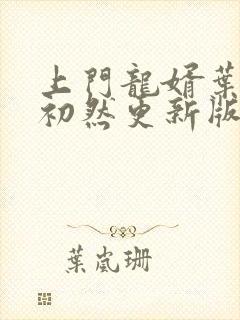 上門龍婿葉
初然更新版
葉嵐珊